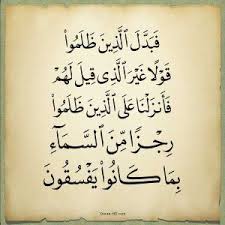 فَبَدَّلَ ٱلَّذِينَ ظَلَمُوا۟
قَوْلًا غَيْرَ ٱلَّذِى قِيلَ لَهُمْ
فَأَنزَلْنَا عَلَى ٱلَّذِينَ ظَلَمُوا۟
رِجْزًا مِّنَ ٱلسَّمَآءِ
بِمَا كَانُوا۟ يَفْسُقُونَ